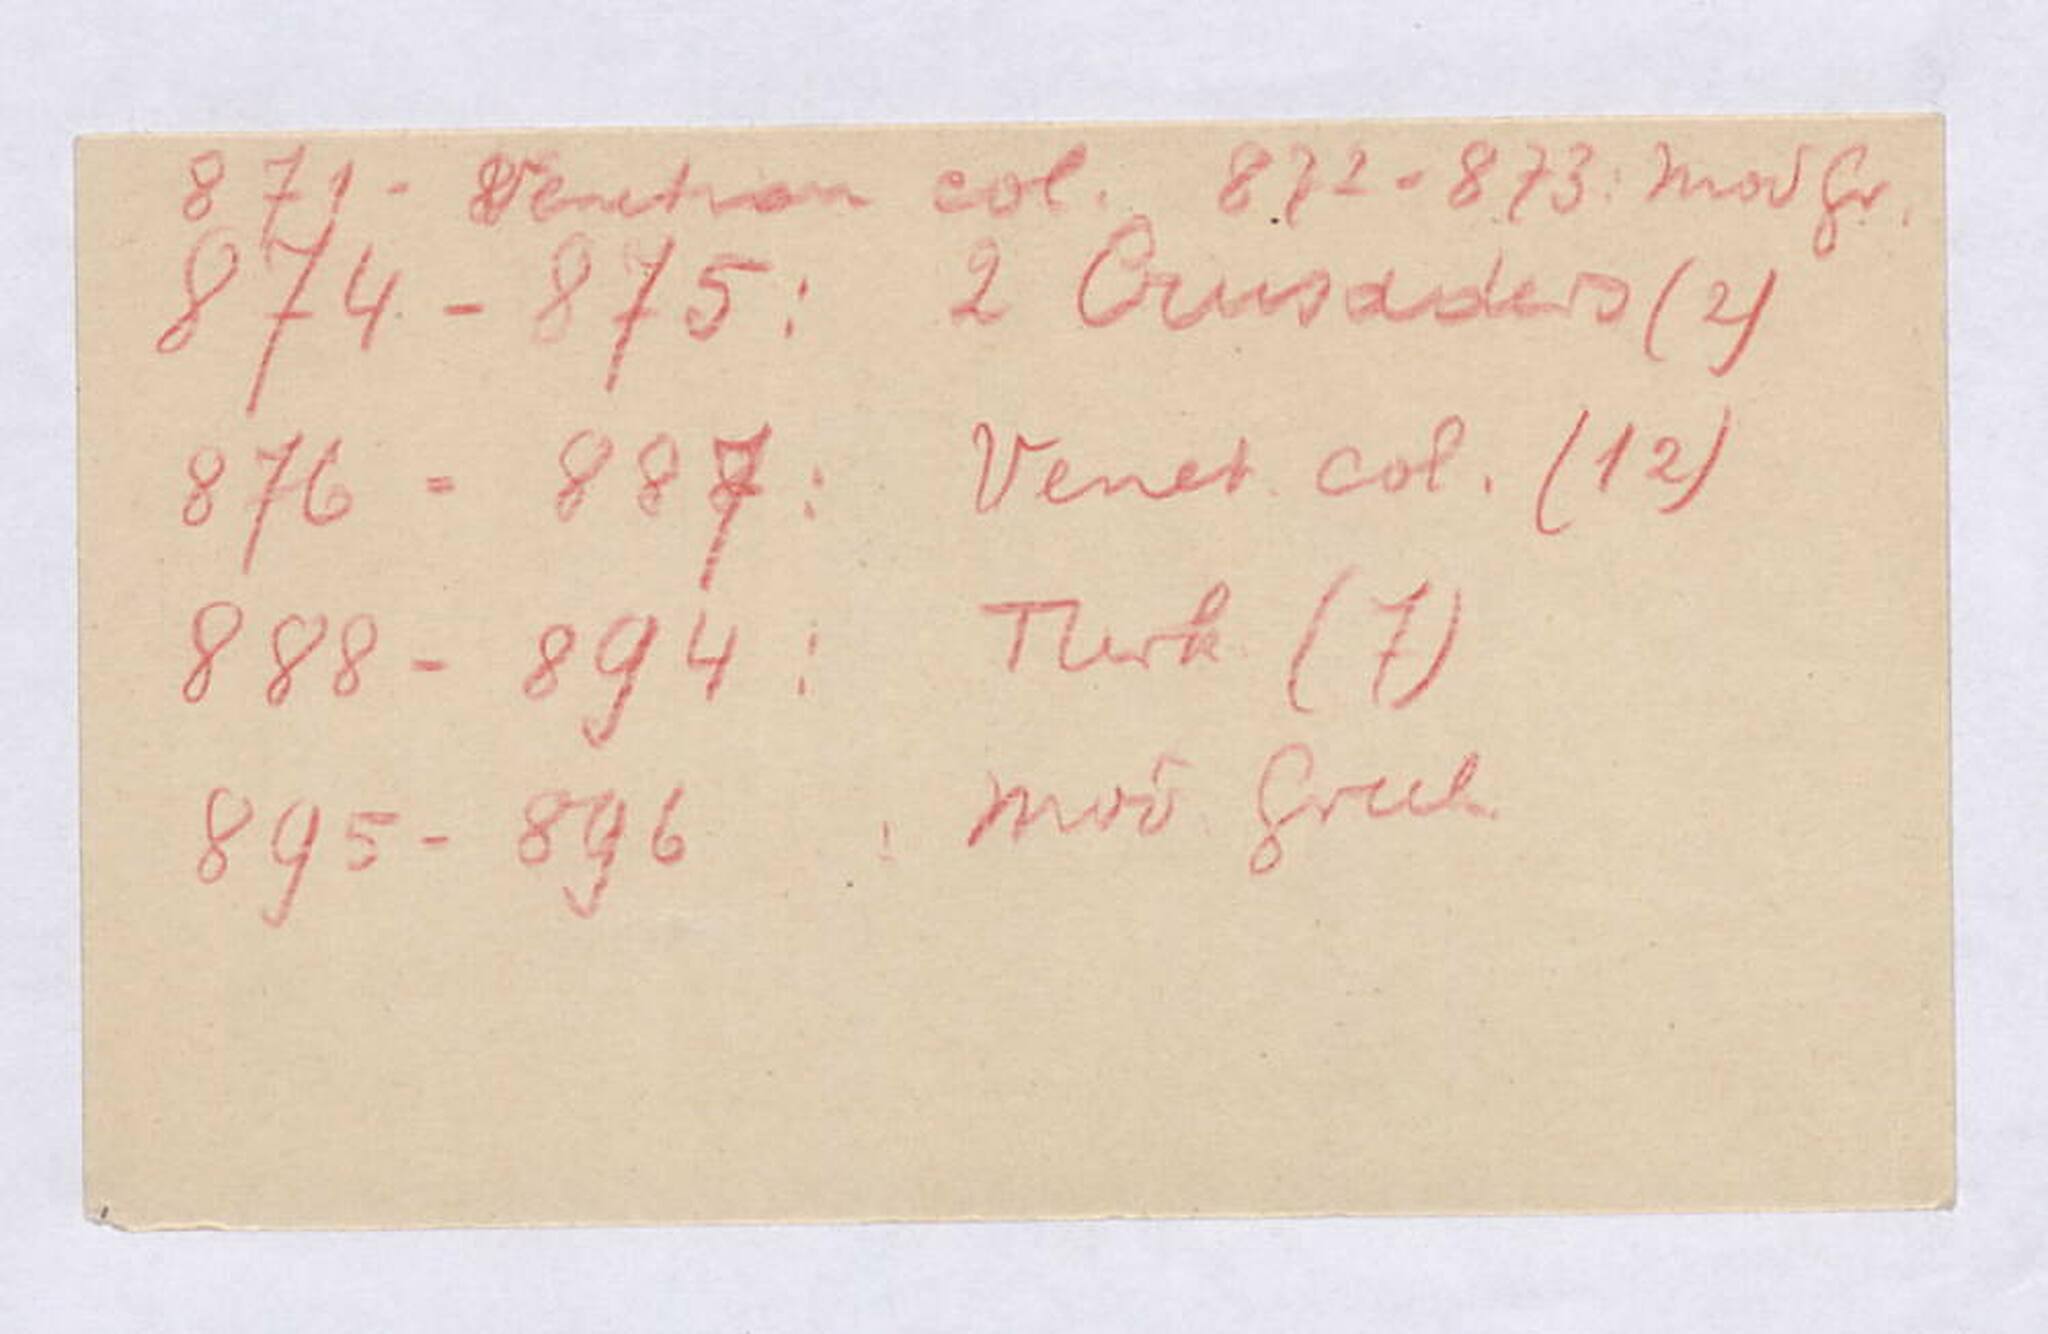 871 - Venetian col. 872 - 873: Mod Gr.
874 - 875: 2 Crusaders (2)
876 - 887: Venet. col. (12)
888 - 894: Turk (7)
895 - 896 : Mod. Greek